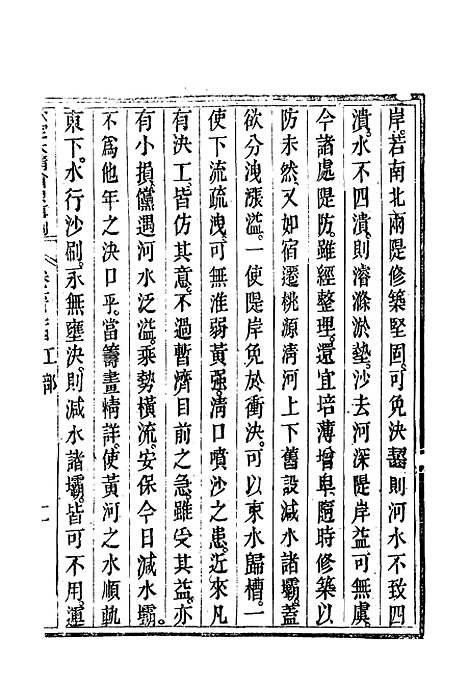 岸。若南北兩隄修築堅固。可免決齧則河水不致四
潰。水不四潰。則濬滌淤墊。沙去河深隄岸益可無虞。
今諸處隄防。雖經整理。還宜培薄增卑。隨時修築以
防未然。又如宿遷桃源淸河上下舊設減水諸壩。蓋
欲分洩漲溢。一使隄岸免於衝決。可以束水歸槽。一
使下流疏洩。可無淮弱黃强。淸口噴沙之患。近來凡
有決工。皆仿其意。不過暫濟目前之急。雖受其益。亦
有小損。儻遇河水泛溢。乘勢橫流。安保今日減水壩。
不爲他年之決口乎。當籌畫精詳。使黃河之水順軌
東下。水行沙刷。永無壅決。則減水諸壩。皆可不用。運
工部